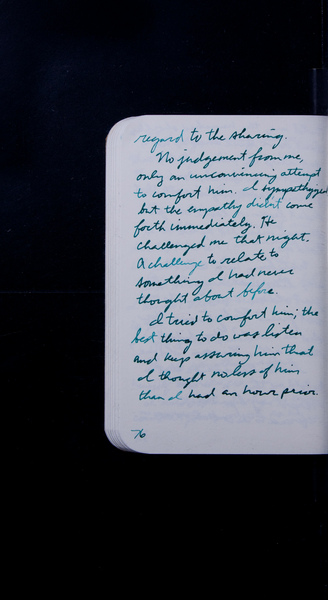 regard to the sharing.
No judgement from me,
only an unconvincing attempt
to comfort him. I sympathyzed
but the empathy didnt come
forth immediately. He
challenged me that night.
A challenge to relate to
something I had never
thought about before.
I tried to comfort him; the
best thing to do was listen
and keep assuring him that
I thought no less of him
than I had an hour prior.
76